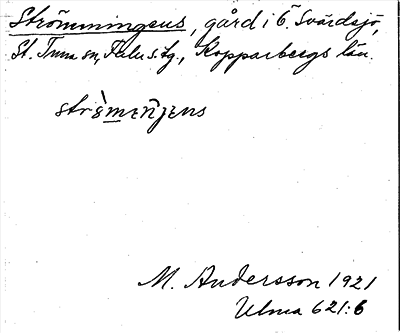 Strömmingens, gård i Ö. Svärdsjö,
St. Tuna sn, Falu s. tg., Kopparbergs län.
strèmeŋens
M. Andersson 1921
Ulma 621:6